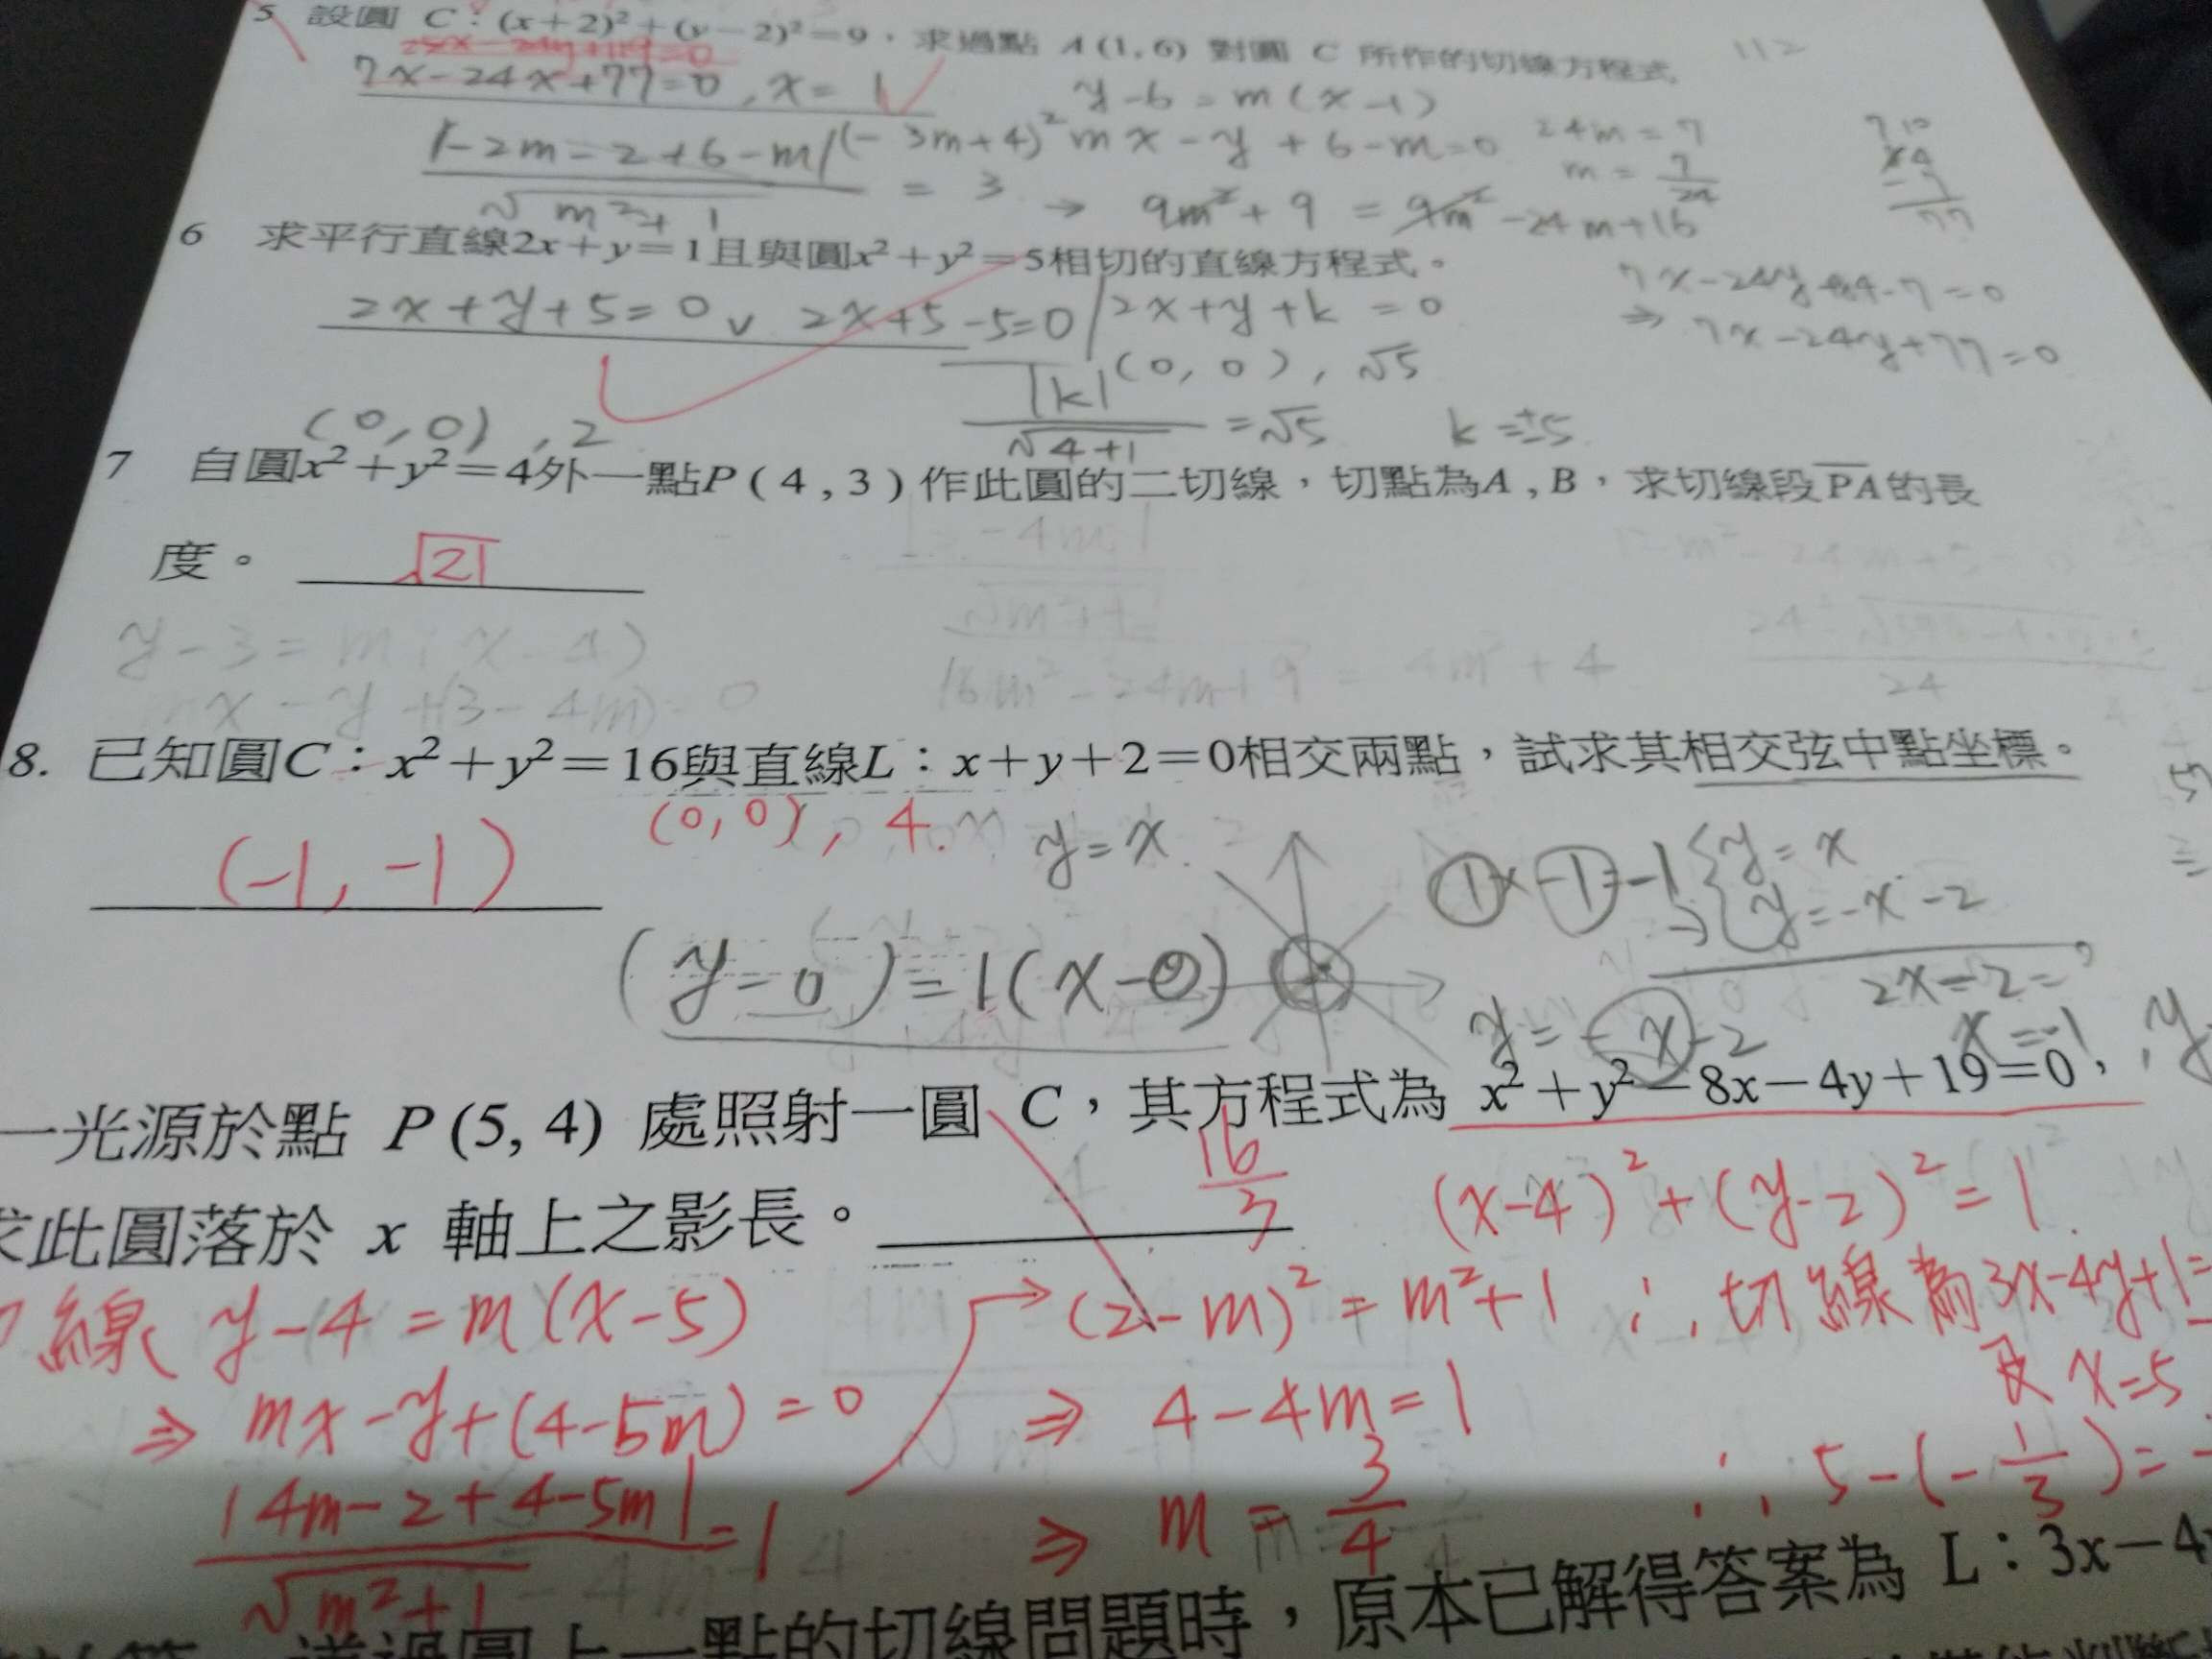 5 設圓 C：(x+2)²+(y−2)²=9，求過點 A(1,6) 對圓 C 所作的切線方程式.
112
7x−24x+77=0, x=1
y−6=m(x−1)
|−2m−2+6−m| (−3m+4)² mx−y+6−m=0 24m=7
√m²+1 =3 → 9m²+9=9m²−24m+16 m=7/24
77
6 求平行直線2x+y=1且與圓x²+y²=5相切的直線方程式。
7x−24y+84−7=0
2x+y+5=0 ∨ 2x+5−5=0 2x+y+k=0
⇒ 7x−24y+77=0
(0,0), √5
|k|/√4+1 =√5 k=±5
(0,0), 2
7 自圓x²+y²=4外一點P(4,3)作此圓的二切線，切點為A,B，求切線段PA的長
度。 √21
y−3=m(x−4)
x−y+(3−4m)=0 16m²−24m+9=4m²+4
8. 已知圓C：x²+y²=16與直線L：x+y+2=0相交兩點，試求其相交弦中點坐標。
(0,0), 4. y=x
(−1,−1) 1×−1=−1 {y=x
→ y=−x−2
(y−0)=1(x−0) 2x−2=
y=−x−2 x=−1, y
一光源於點 P(5,4) 處照射一圓 C，其方程式為 x²+y²−8x−4y+19=0，
16/3 (x−4)²+(y−2)²=1
求此圓落於 x 軸上之影長。
線 y−4=m(x−5) (2−m)²=m²+1 ∴切線為3x−4y+1=
及 x=5
⇒ mx−y+(4−5m)=0 ⇒ 4−4m=1
|4m−2+4−5m|/√m²+1 =1 ⇒ m=3/4 ∴ 5−(−1/3)=
過圓上一點的切線問題時，原本已解得答案為 L：3x−4